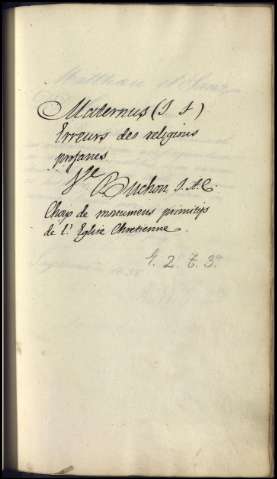 Maternus (J. F)
Erreurs des religions
profanes.
Vte Buchon J. A. C.
Choix de monumens primitifs
de l'Eglise Chretienne.
2. 3